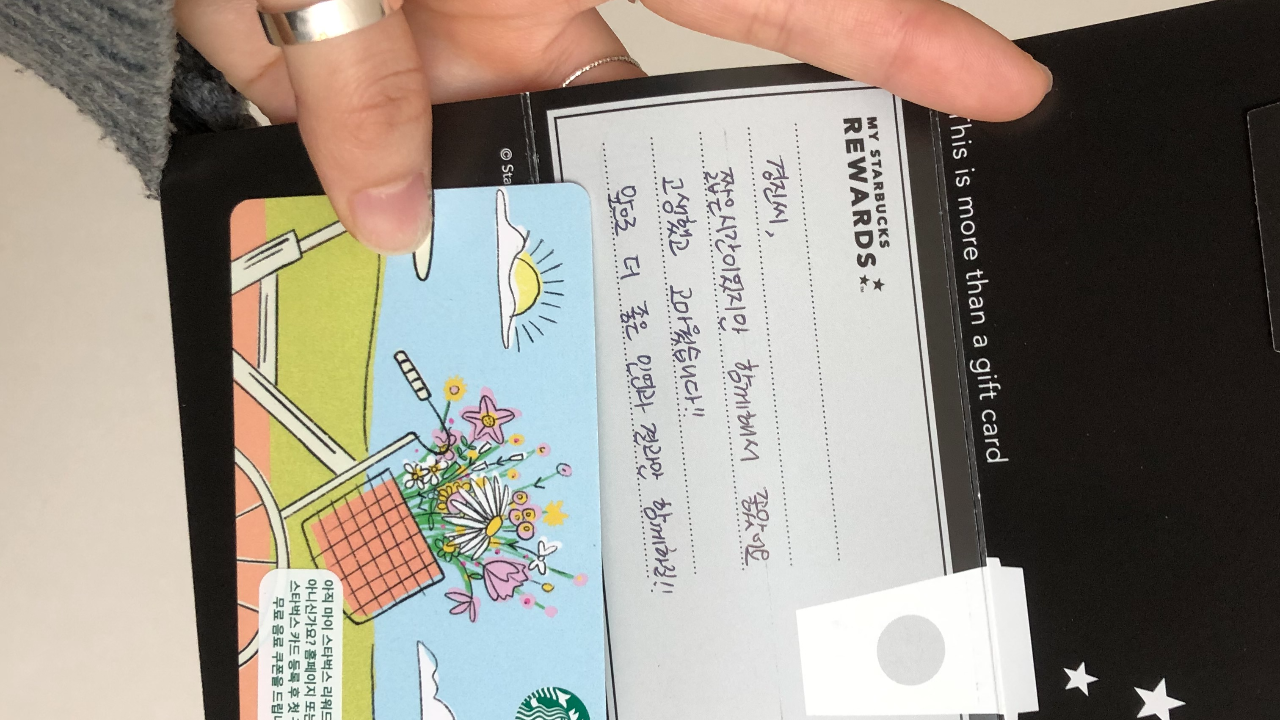 This is more than a gift card
MY STARBUCKS
REWARDS
경진씨,
짧은시간이었지만 함께해서 좋았어요
고생했고 고마웠습니다!!
앞으로 더 좋은 인연과 결과만 함께하길!!
© Sta
아직 마이 스타벅스 리워드
아니신가요? 홈페이지 또는
스타벅스 카드 등록 후 첫
무료 음료 쿠폰을 드립니